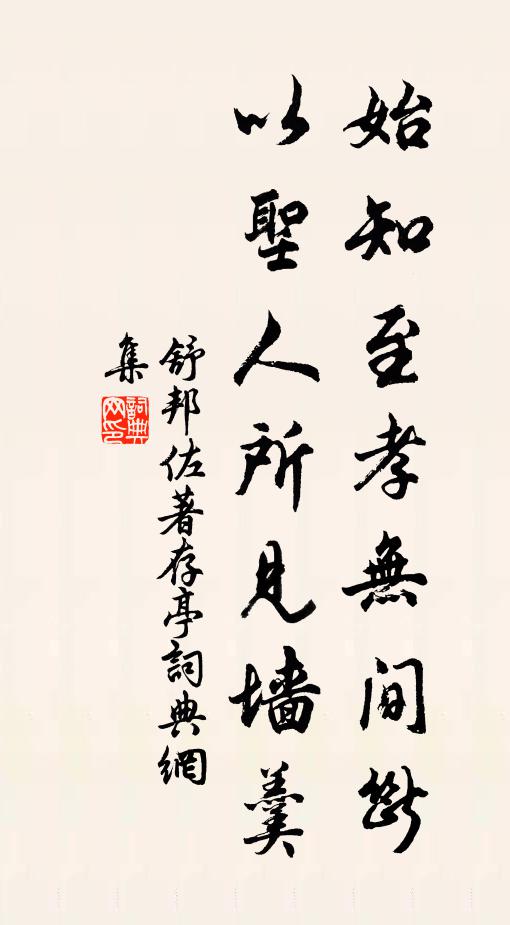 始知至孝無間斷
以聖人所見墻羹
舒邦佐著存亭詞典網
集
詞典
网印